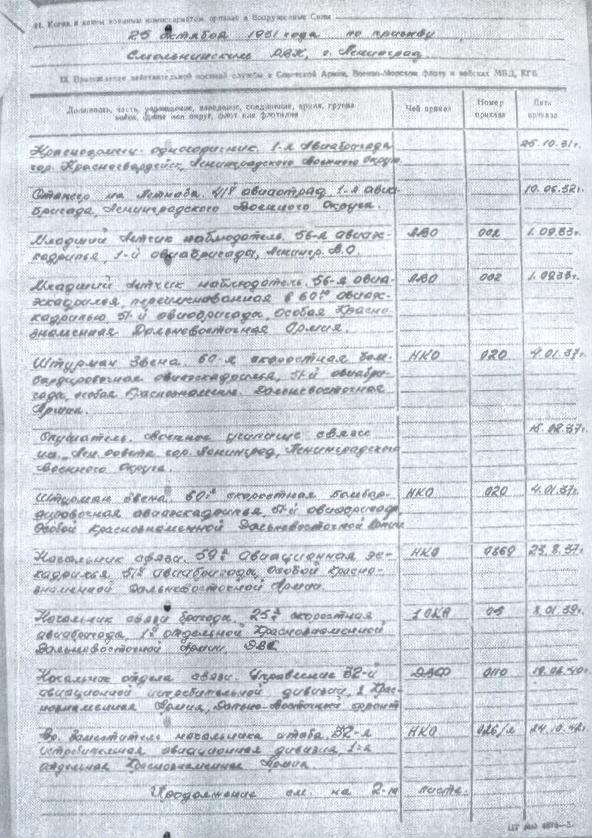 11. Когда и каким военным комиссариатом призван в Вооруженные Силы
25 октября 1931 года по призыву
Смольнинским РВК, г. Ленинград.
12. Прохождение действительной военной службы в Советской Армии, Военно-Морском флоте и войсках МВД, КГБ
Должность, часть, управление, заведение, соединение, армия, группа войск, военный округ, флот или флотилия
Чей приказ
Номер приказа
Дата приказа
Краснодармеец-одногодичник. 1-я Авиабригада 25.10.31г.
гор. Красногвардейск, Ленинградского Военного Округа
на Летнаба. 41й авиаотряд 1-я авиа- 10.06.32г.
бригада, Ленинградского Военного Округа.
Младший летчик наблюдатель. 56-я авиаэс- ЛВО 002 1.09.33г.
кадрилья, 1-й авиабригады, Ленингр. В.О.
Младший летчик наблюдатель. 56-я авиа- ЛВО 002
эскадрилья, переименованная в 60ю авиаэс-
кадрилью, 51-й авиабригады, Особая Красно-
знаменная Дальневосточная Армия.
Штурман Звена. 60-я скоростная бом- НКО 020 4.01.37г.
бардировочная авиаэскадрилья, 51-й авиабри-
гады, особая Краснознамен. Дальневосточная
Армия.
Слушатель. Военное училище связи 15.02.37г.
им. Лен. совета гор. Ленинград, Ленинградского
Военного Округа.
Штурман звена. 60я скоростная бомбар- НКО 020 4.01.37г.
дировочная авиаэскадрилья, 51-й авиабригады
Особой Краснознаменной Дальневосточной Армии
Начальник связи. 59я авиационная эс- НКО 0869 23.8.37г.
кадрилья, 51й авиабригады, Особой Красно-
знаменной Дальневосточной Армии.
Начальник связи бригады. 25я скоростная 1 ОКА 05 8.01.39г.
авиабригада, 1й отдельной Краснознаменной
Дальневосточной Армии, ДВК
Начальник отдела связи. Управление 32-й ДВФ 0110
авиационной истребительной дивизии, 1 Крас-
нознаменная Армия, Дальне-Восточный фронт
Вр. Заместитель начальника штаба. 32-я НКО 24.10.42г.
истребительная авиационная дивизия, 1-я
отдельная Краснознаменная Армия
Продолжение см. на 2-м листе.